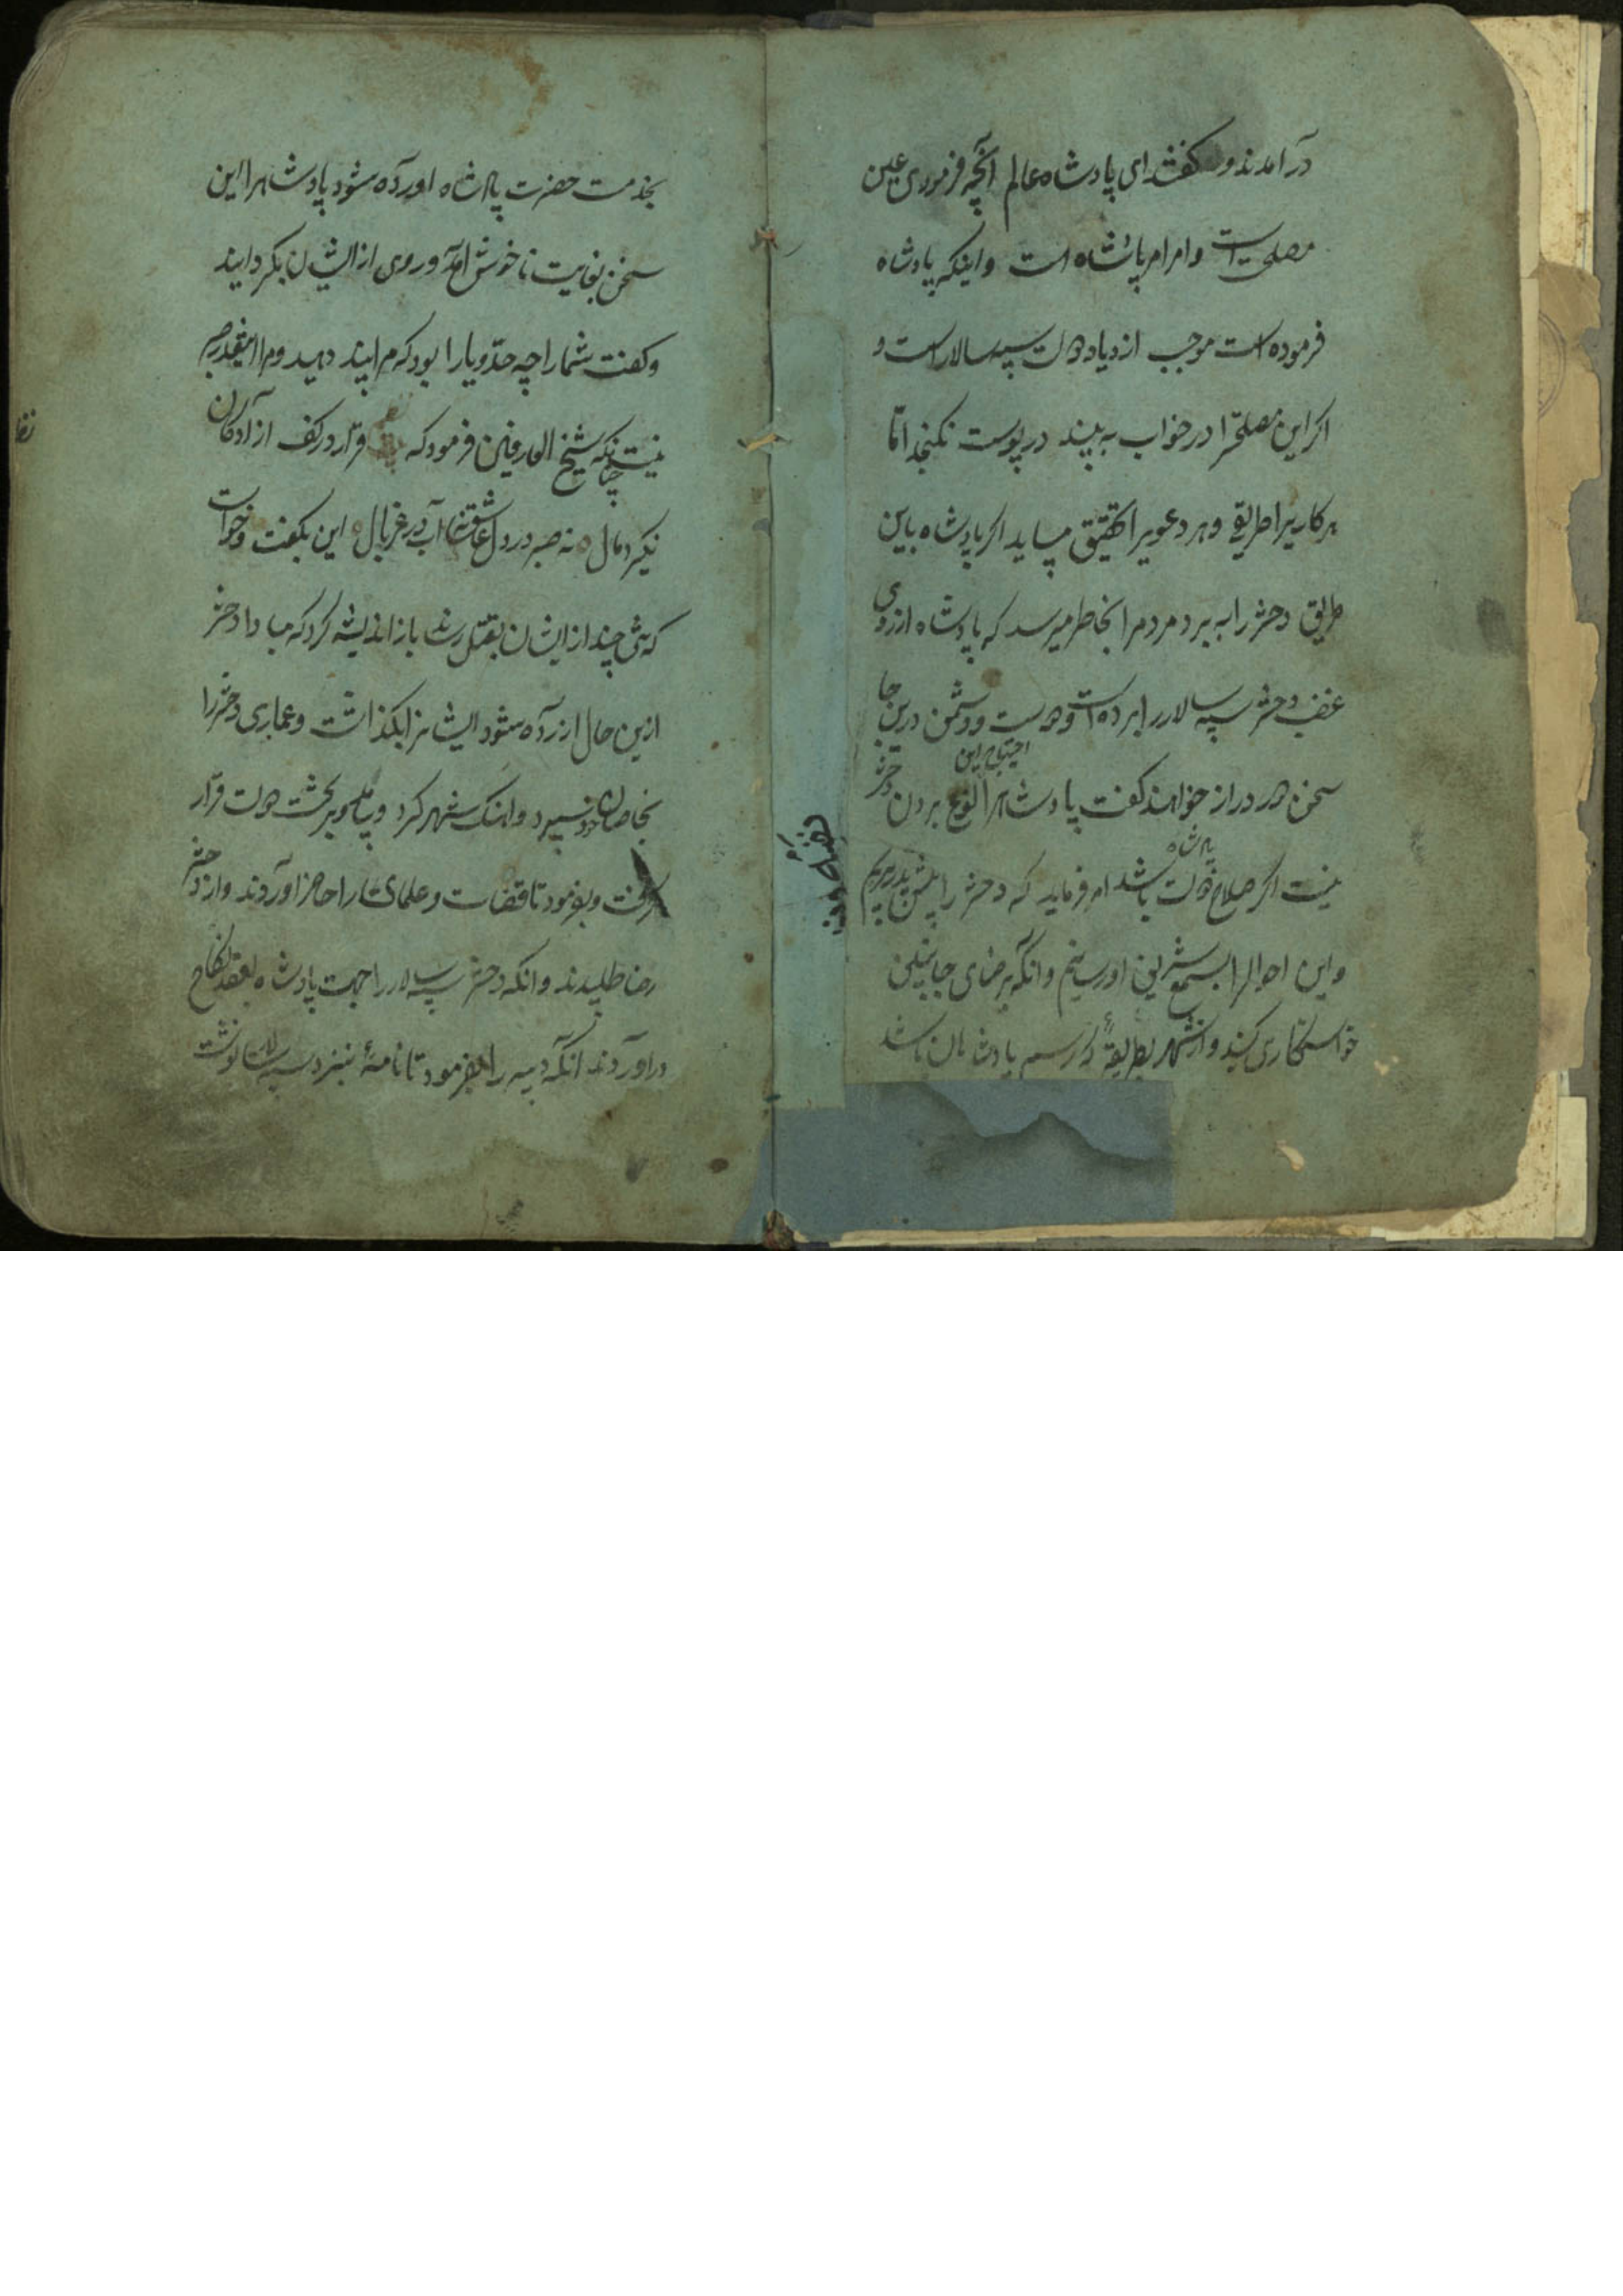 درآمدند و گفتند ای پادشاه عالم آنچه فرمودی عین
مصلحت است و امر امر پادشاه است و اینکه پادشاه
فرموده است موجب ازدیاد دولت سپهسالار است و
اگر این مصلحترا در خواب به بیند در پوست نکنجد اما
هر کاریرا طریقی و هر دعویرا تحقیقی میباید اگر پادشاه باین
طریق دختر را ببرد مردمرا بخاطر میرسد که پادشاه از روی
غضب دختر سپه سالار را برده است و دوست و دشمن درین جا
سخن دور دراز خواهند گفت پادشاهرا بردن دختر
احتیاج این
نیست اگر صلاح دولت پادشاه باشد امر فرماید که دختر را پیش پدر بریم
و این احوالرا بسمع شریف او رسانیم و آنگه برضای جانبین
خواستگاری کنند و از شهر بطریقهٔ که رسم پادشاهان باشد
بخدمت حضرت پادشاه اورده شود پادشاهرا این
سخن بغایت ناخوش آمد و روی از ایشان بگردانید
و گفت شمارا چه حد و یارا بود که مرا پند دهید و مرا اینقدر صبر
نیست چنانکه شیخ العارفین فرمود که قرار در کف آزادگان
نگیرد مال نه صبر در دل عاشق نه آب در غربال این بگفت و خواست
که تنی چند از ایشان بقتل رساند باز اندیشه کرد که مبادا دختر
ازین حال آزرده شود ایشانرا بگذاشت و عماری دختر را
بخاصان خود سپرد و آهنگ شهر کرد و بر تخت دولت قرار
گرفت و بفرمود تا قضات و علمای را حاضر آوردند و از دختر
رضا طلبیدند و آنگه دختر سپه سالار را جهت پادشاه بعقد نکاح
درآوردند آنگه دبیر را بفرمود تا نامهٔ بنزد سپه سالار نوشت